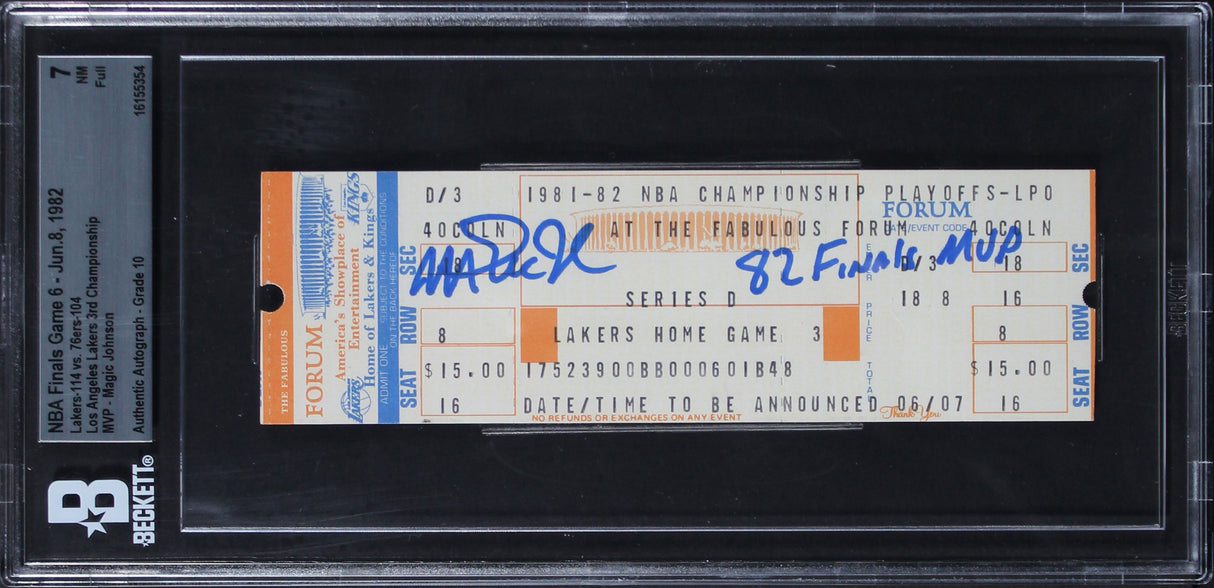 7
NM
Full
16155354
NBA Finals Game 6 - Jun.8, 1982
Lakers-114 vs. 76ers-104
Los Angeles Lakers 3rd Championship
MVP - Magic Johnson
Authentic Autograph - Grade 10
B
BECKETT®
THE FABULOUS
FORUM
America's Showplace of
Entertainment
Home of Lakers & Kings
KINGS
LAKERS
ADMIT ONE SUBJECT TO THE CONDITIONS
ON THE BACK HEREOF
SEAT ROW SEC
D/3
40COLN
18
8
$15.00
16
1981-82 NBA CHAMPIONSHIP PLAYOFFS-LPO
AT THE FABULOUS FORUM
SERIES D
LAKERS HOME GAME 3
17523900BB000601B48
DATE/TIME TO BE ANNOUNCED 06/07
NO REFUNDS OR EXCHANGES ON ANY EVENT
Magic J
82 Finals MVP
PRICE
TOTAL
FORUM
DATE/EVENT CODE
40COLN
D/3
18
18 8
16
8
$15.00
16
Thank You
SEAT ROW SEC
BECKETT